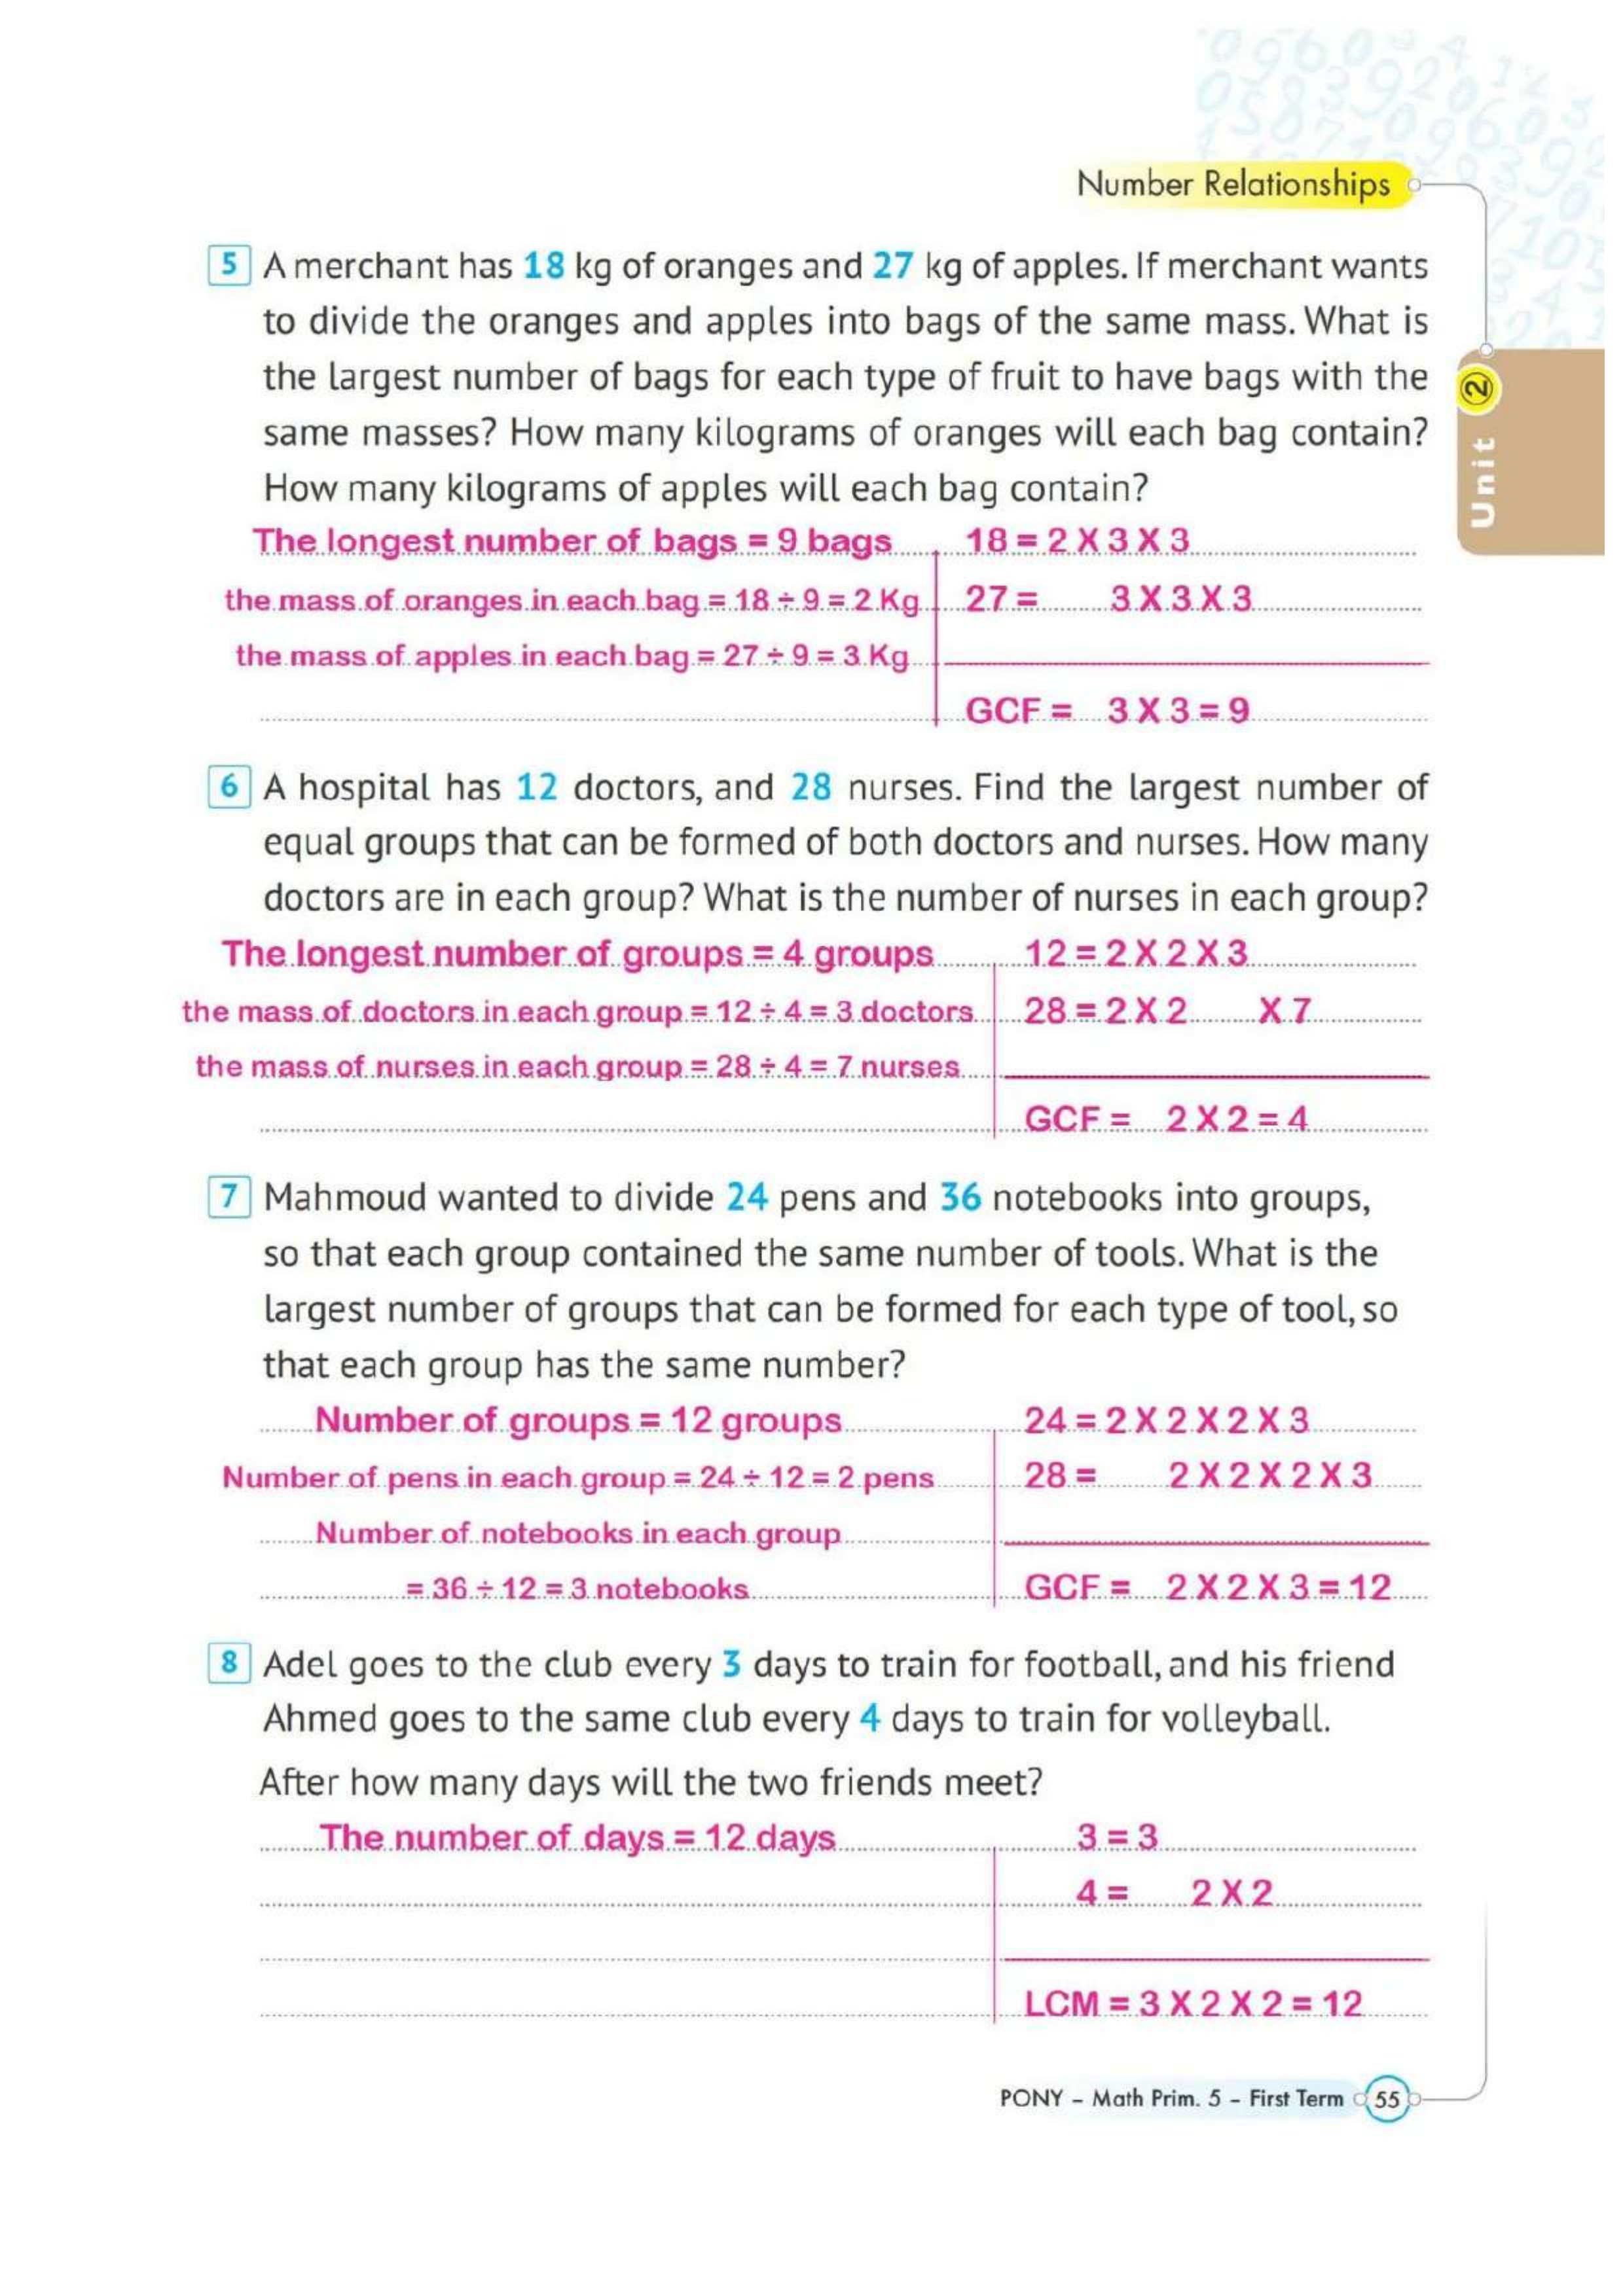 Number Relationships
5 A merchant has 18 kg of oranges and 27 kg of apples. If merchant wants
to divide the oranges and apples into bags of the same mass. What is
the largest number of bags for each type of fruit to have bags with the
same masses? How many kilograms of oranges will each bag contain?
How many kilograms of apples will each bag contain?
The longest number of bags = 9 bags 18 = 2 X 3 X 3
the mass of oranges in each bag = 18 ÷ 9 = 2 Kg 27 = 3 X 3 X 3
the mass of apples in each bag = 27 ÷ 9 = 3 Kg
GCF = 3 X 3 = 9
Unit 2
6 A hospital has 12 doctors, and 28 nurses. Find the largest number of
equal groups that can be formed of both doctors and nurses. How many
doctors are in each group? What is the number of nurses in each group?
The longest number of groups = 4 groups 12 = 2 X 2 X 3
the mass of doctors in each group = 12 ÷ 4 = 3 doctors 28 = 2 X 2 X 7
the mass of nurses in each group = 28 ÷ 4 = 7 nurses
GCF = 2 X 2 = 4
7 Mahmoud wanted to divide 24 pens and 36 notebooks into groups,
so that each group contained the same number of tools. What is the
largest number of groups that can be formed for each type of tool, so
that each group has the same number?
Number of groups = 12 groups 24 = 2 X 2 X 2 X 3
Number of pens in each group = 24 ÷ 12 = 2 pens 28 = 2 X 2 X 2 X 3
Number of notebooks in each group
= 36 ÷ 12 = 3 notebooks GCF = 2 X 2 X 3 = 12
8 Adel goes to the club every 3 days to train for football, and his friend
Ahmed goes to the same club every 4 days to train for volleyball.
After how many days will the two friends meet?
The number of days = 12 days 3 = 3
4 = 2 X 2
LCM = 3 X 2 X 2 = 12
PONY – Math Prim. 5 – First Term 55